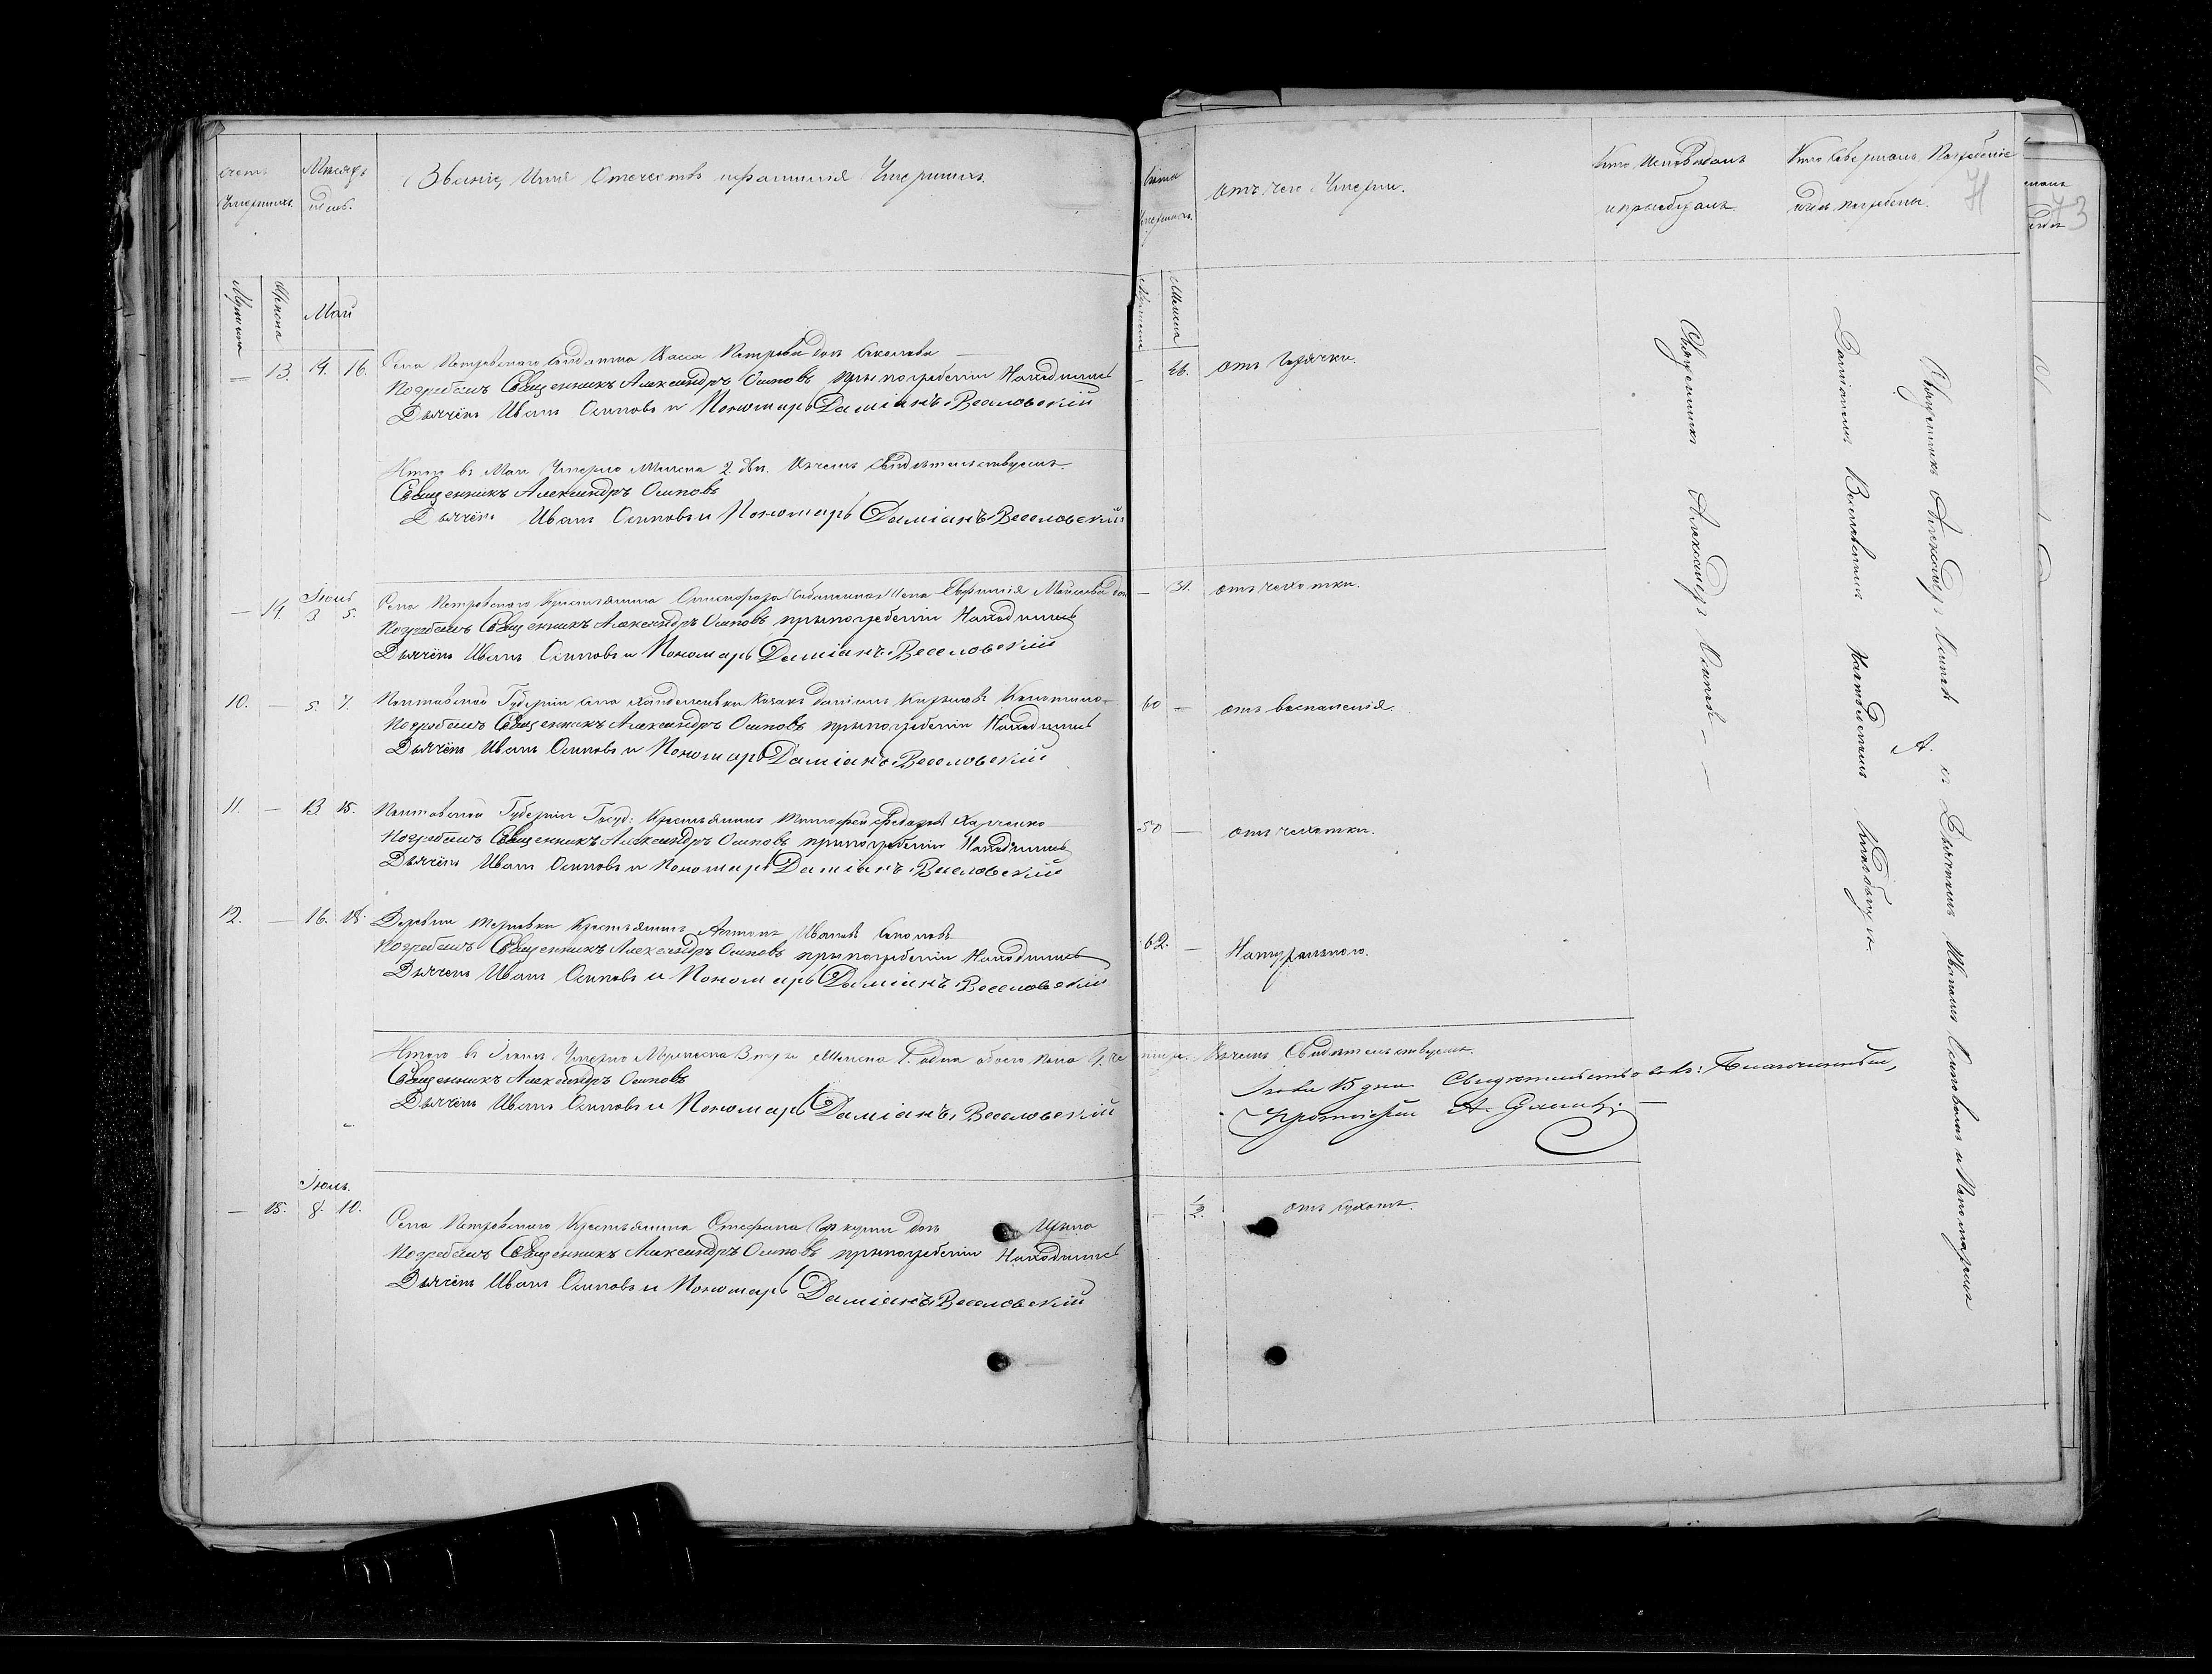 Счетъ Умершихъ.
Мѣсяцъ и день.
Званіе, Имя Отечество и фамилія Умершихъ.
Лѣта Умершихъ.
Отъ чего Умерли.
Кто Исповѣдалъ и пріобщалъ.
Кто Совершалъ Погребеніе и гдѣ погребены.
73
Мужеска
Женска
Май
Мужеска
Женска
— 13. 14. 16. Села Петровскаго Солдатка Васса Петрова дочь Соколова —
Погребалъ Священникъ Александръ Осиповъ при погребеніи Находились
Дьячёкъ Иванъ Осиповъ и Пономарь Даміанъ Веселовскій
— 26. отъ Горячки.
Итого въ Маи Умерло Женска 2. двѣ. Въ чемъ Свидѣтельствуемъ.
Священникъ Александръ Осиповъ
Дьячёкъ Иванъ Осиповъ и Пономарь Даміанъ Веселовскій
Іюнь
— 14. 3 5. Села Петровскаго Крестьянина жена Евфимія дочь
Погребалъ Священникъ Александръ Осиповъ при погребеніи Находились
Дьячёкъ Иванъ Осиповъ и Пономарь Даміанъ Веселовскій
— 31. отъ чехотки.
10. — 5. 7. Полтавской Губерніи села Козакъ Даміанъ
Погребалъ Священникъ Александръ Осиповъ при погребеніи Находились
Дьячёкъ Иванъ Осиповъ и Пономарь Даміанъ Веселовскій
60 — отъ воспаленія.
11. — 13. 15. Полтавской Губерніи Госуд: Крестьянинъ Тимофей Федоровъ Харченко
Погребалъ Священникъ Александръ Осиповъ при погребеніи Находились
Дьячёкъ Иванъ Осиповъ и Пономарь Даміанъ Веселовскій
50 — отъ чехотки.
12. — 16. 18. Деревни Терновки Крестьянинъ Антонъ Ивановъ Соколовъ
Погребалъ Священникъ Александръ Осиповъ при погребеніи Находились
Дьячёкъ Иванъ Осиповъ и Пономарь Даміанъ Веселовскій
62. — Натурально.
Итого въ Іюнѣ Умерло Мужеска 3 три Женска 1. одна обоего пола 4. четыре. Въ чемъ Свидѣтельствуемъ.
Священникъ Александръ Осиповъ
Дьячёкъ Иванъ Осиповъ и Пономарь Даміанъ Веселовскій
15 дня Благочинный,
Протоіерей А.
Іюль.
— 15. 8. 10. Села Петровскаго Крестьянина Стефана дочь
Погребалъ Священникъ Александръ Осиповъ при погребеніи Находились
Дьячёкъ Иванъ Осиповъ и Пономарь Даміанъ Веселовскій
— 1/2. отъ сухотъ.
Священникъ Александръ Осиповъ — —
Священникъ Александръ Осиповъ съ Дьячкомъ Иваномъ Осиповымъ и Пономаремъ
Даміаномъ Веселовскимъ на Кладбищѣ